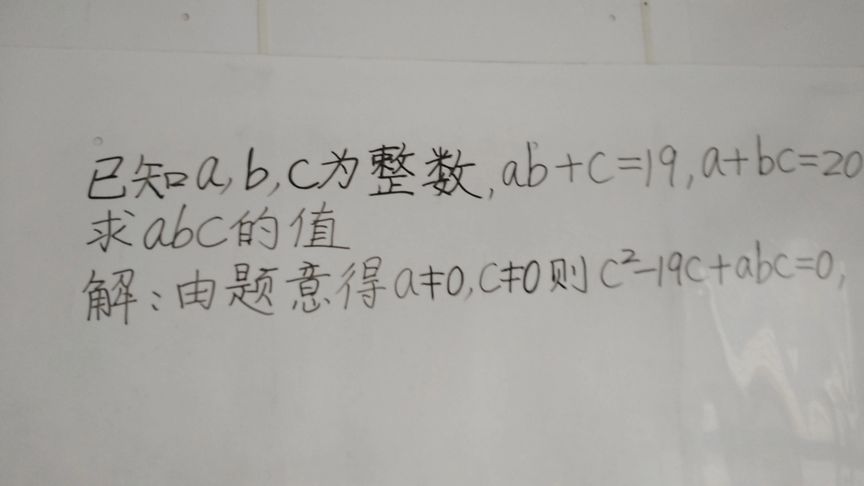 已知a,b,c为整数,ab+c=19,a+bc=20
求abc的值
解:由题意得a≠0,c≠0则c²-19c+abc=0,